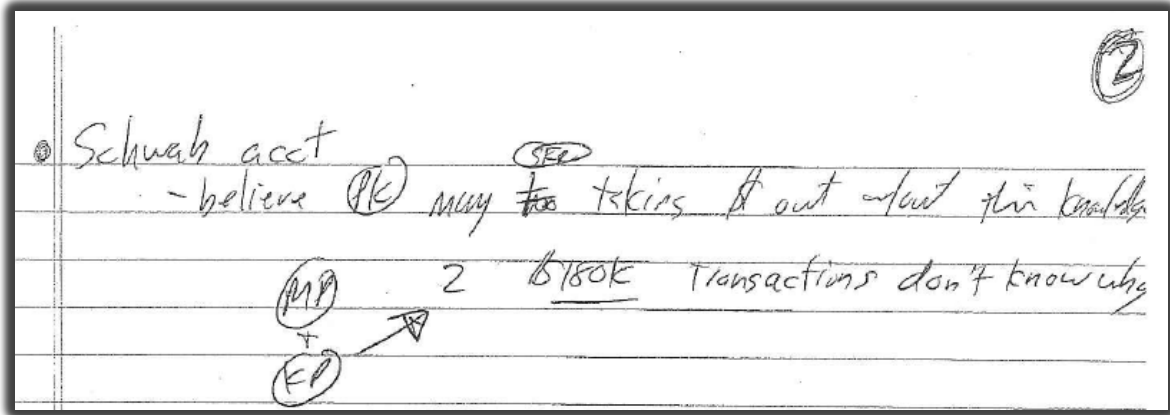 2
Schwab acct
SEP
- believe PK may too taking $ out w/out their knowledge
MP 2 $180K Transactions don't know why
+
KP